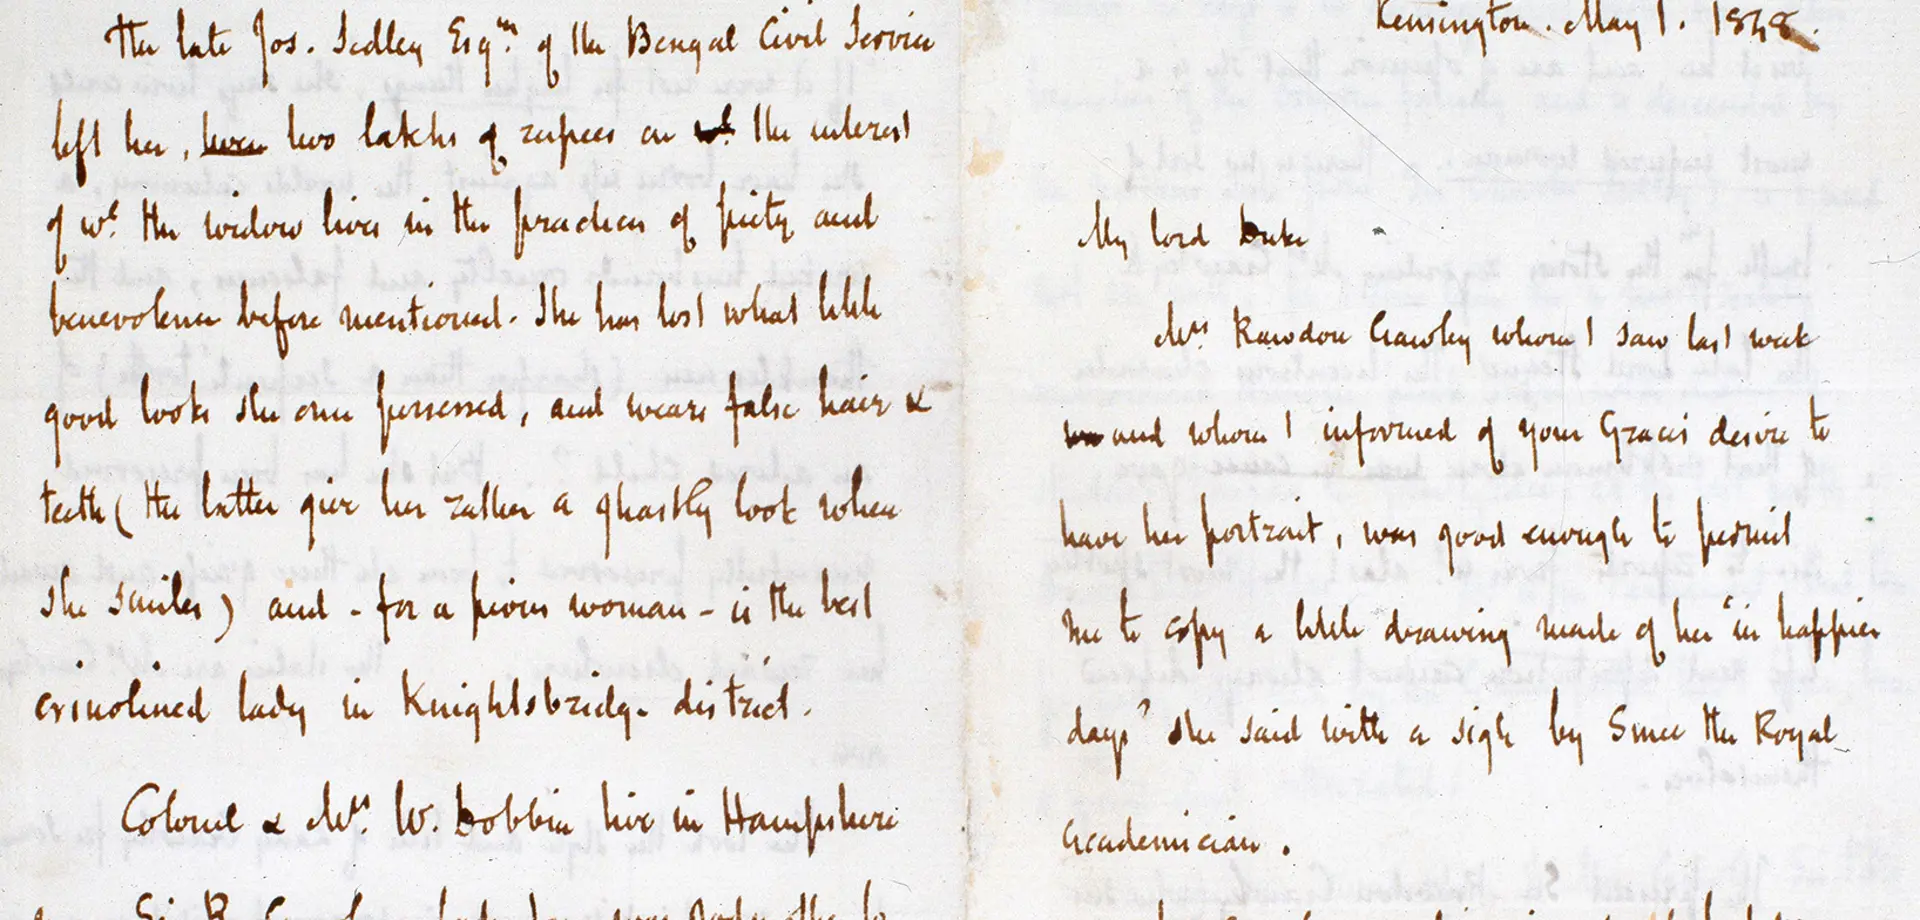 Kensington. May 1. 1848.
My lord Duke
Mrs Rawdon Crawley whom I saw last week
and whom I informed of your Graces desire to
have her portrait, was good enough to permit
me to copy a little drawing made of her "in happier
days" she said with a sigh by Smee the Royal
Academician.
The late Jos. Sedley Esqre of the Bengal Civil Service
left her, two lakhs of rupees on the interest
of wh. the widow lives in the practices of piety and
benevolence before mentioned. She has lost what little
good looks she once possessed, and wears false hair &
teeth (the latter give her rather a ghastly look when
she smiles) and - for a pious woman - is the best
crinolined lady in Knightsbridge district.
Colonel & Mrs. W. Dobbin live in Hampshire
Sir R. Crawley